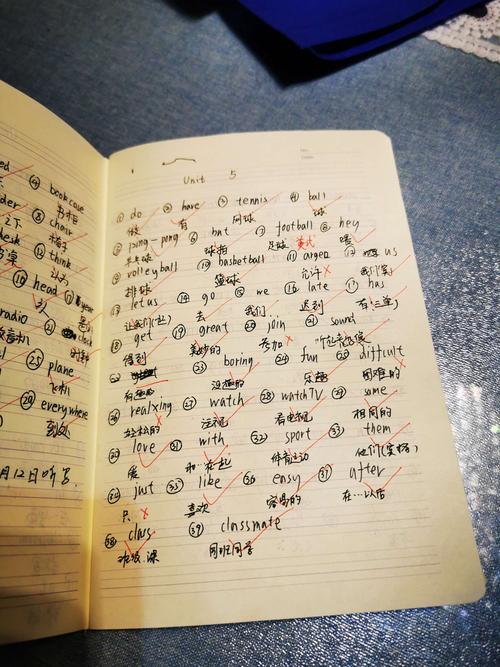 ④ bookcove
书柜
⑧ chair
椅子
之下
⑫ think
认为
书桌
⑯ head
头
radio
㉕ plane
飞机
㉙ everywhere
到处
月12日听写
Unit 5
① do ② have ③ tennis ④ ball
做 有 网球 球
⑤ ping-pong ⑥ bat ⑦ football ⑧ hey
乒乓球 球拍 足球 美式 嘿
⑨ volleyball ⑩ basketball ⑪ argen ⑫ us
排球 篮球 允许 我们(宾)
⑬ let us ⑭ go ⑮ we ⑯ late ⑰ has
让我们(让) 去 我们 迟到 有(三单)
⑱ get ⑲ great ⑳ join ㉑ sound
得到 美妙的 参加
㉓ boring ㉔ fun difficult
有趣的 没趣的 乐趣 困难的
㉖ realxing ㉗ watch ㉘ watch TV ㉙ same
轻松的 注视 看电视 相同的
㉚ love ㉛ with ㉜ sport ㉝ them
爱 和…在一起 体育运动 他们(宾格)
㉞ just ㉟ like ㊱ easy ㊲ after
只 喜欢 容易的 在…以后
㊳ class ㊴ classmate
班级.课 同班同学